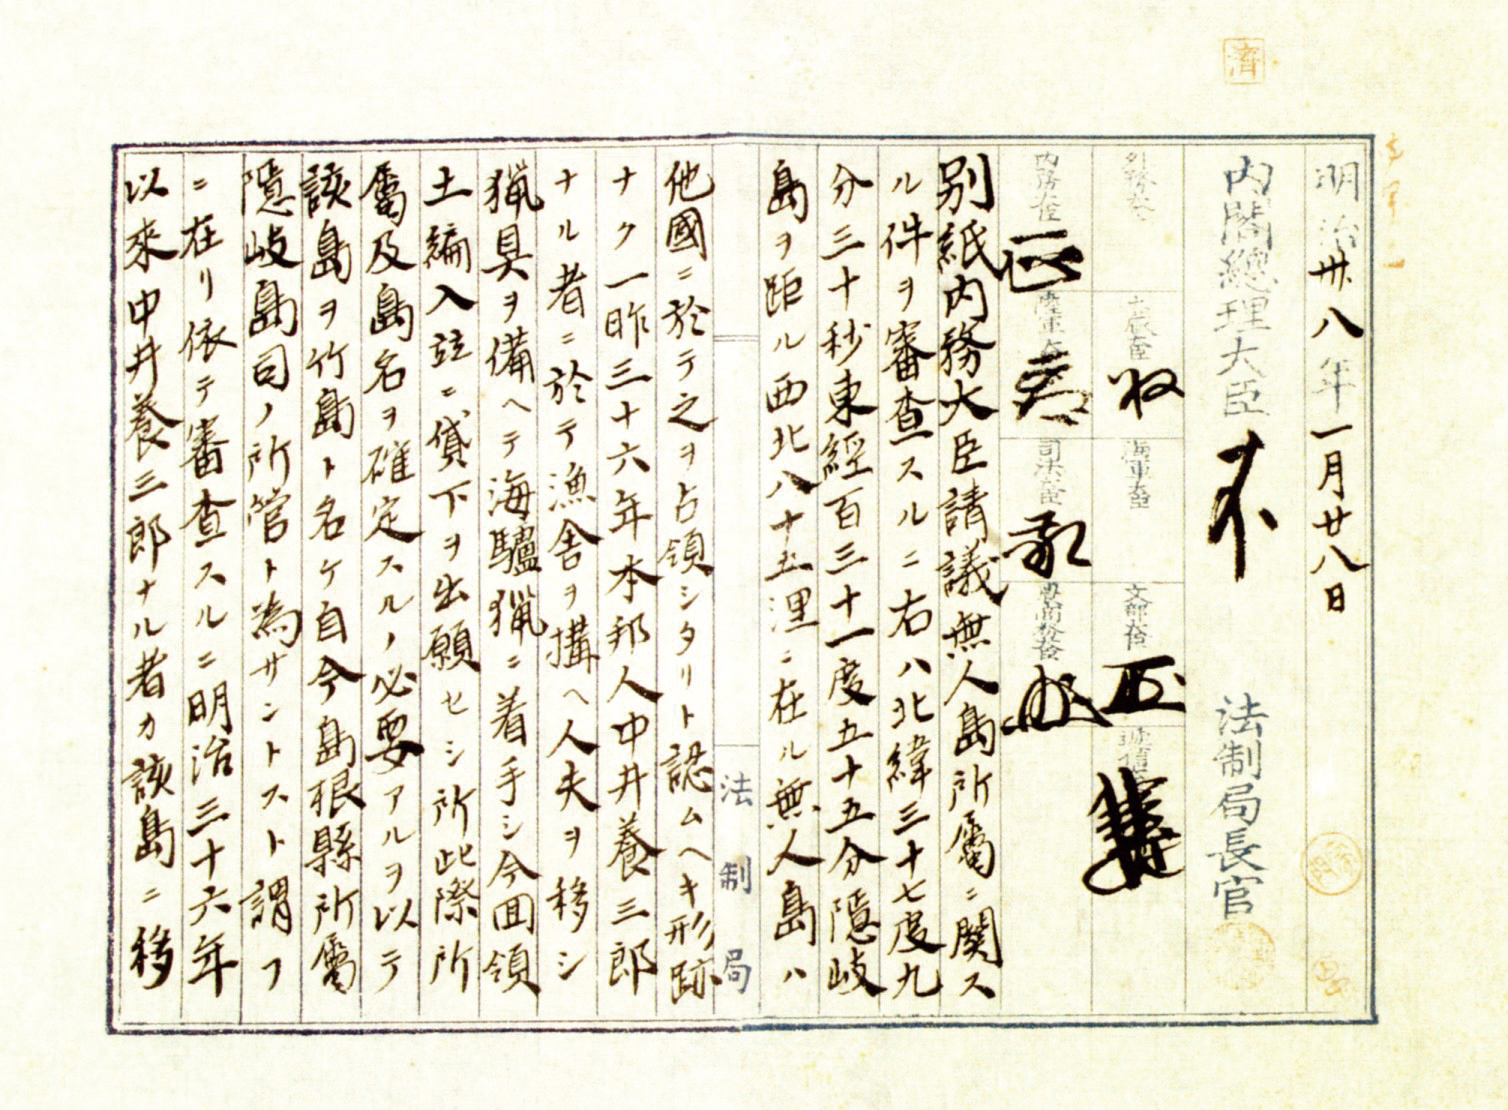 明治卅八年一月廿八日
内閣總理大臣
法制局長官
外務大臣
大藏大臣
海軍大臣
文部大臣
逓信
内務大臣
陸軍大臣
司法大臣
農商務大臣
別紙内務大臣請議無人島所屬ニ關ス
ル件ヲ審査スルニ右ハ北緯三十七度九
分三十秒東經百三十一度五十五分隱岐
島ヲ距ル西北八十五浬ニ在ル無人島ハ
他國ニ於テ之ヲ占領シタリト認ムヘキ形跡
ナク一昨三十六年本邦人中井養三郎
ナル者ニ於テ漁舎ヲ搆ヘ人夫ヲ移シ
獵具ヲ備ヘテ海驢獵ニ着手シ今回領
土編入竝ニ貸下ヲ出願セシ所此際所
屬及島名ヲ確定スルノ必要アルヲ以テ
該島ヲ竹島ト名ケ自今島根縣所屬
隱岐島司ノ所管ト為サントスト謂フ
ニ在リ依テ審査スルニ明治三十六年
以來中井養三郎ナル者カ該島ニ移
法制局
濟